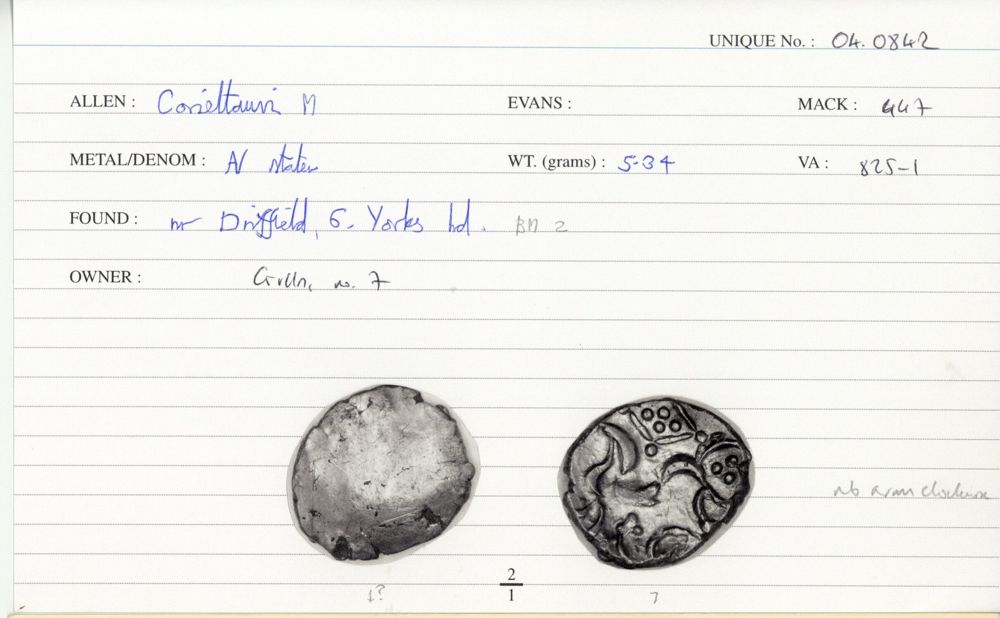 UNIQUE No. : 04.0842
ALLEN : Corieltauvi M EVANS : MACK : 447
METAL/DENOM : N stater WT. (grams) : 5.34 VA : 825-1
FOUND : nr Driffield, E. Yorks hd. BM 2
OWNER : no. 7
2
1
1? 7